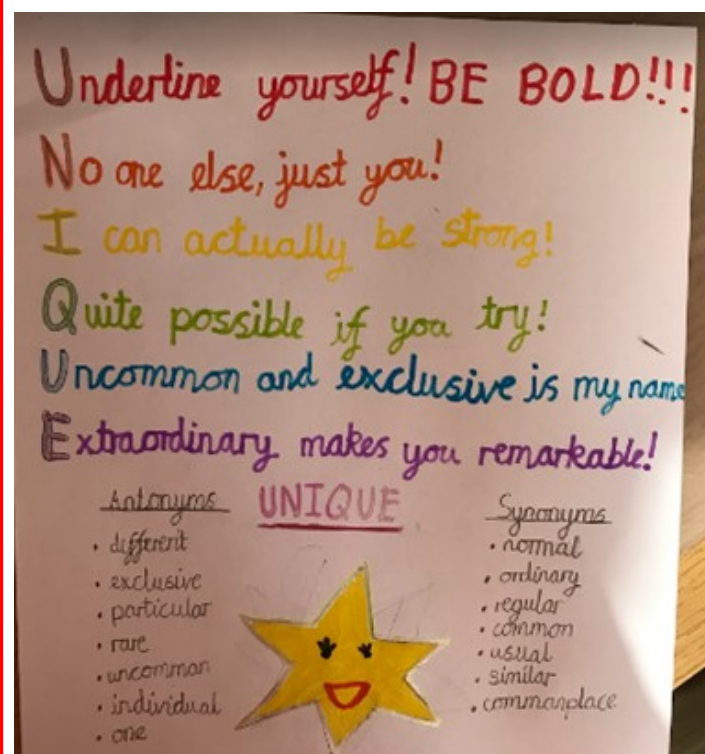 Underline yourself! BE BOLD!!!
No one else, just you!
I can actually be strong!
Quite possible if you try!
Uncommon and exclusive is my name
Extraordinary makes you remarkable!
UNIQUE
Antonyms
• different
• exclusive
• particular
• rare
• uncomman
• individual
• one
Synonyms
• normal
• ordinary
• regular
• common
• usual
• similar
• commanplace